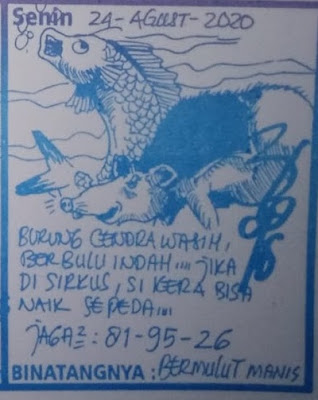 Senin 24-AGUST-2020
BURUNG CENDRAWASIH,
BERBULU INDAH.... JIKA
DI SIRKUS, SI KERA BISA
NAIK SEPEDA...
JAGA²: 81-95-26
BINATANGNYA : BERMULUT MANIS